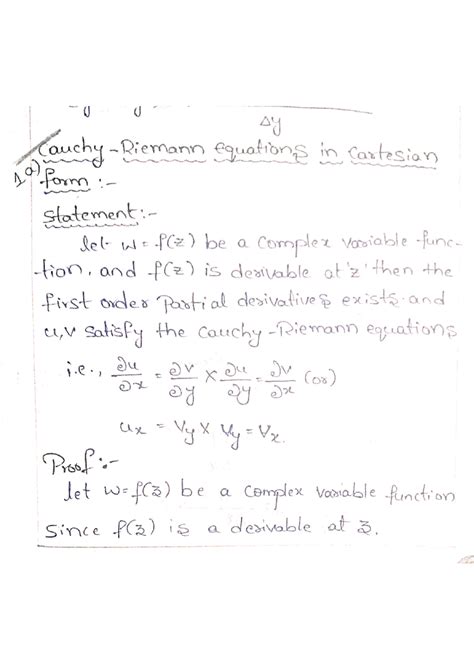 Δy
Cauchy-Riemann equations in Cartesian
1 a) form :-
Statement :-
let w = f(z) be a complex variable func-
-tion, and f(z) is derivable at 'z' then the
first order Partial derivatives exists and
u,v satisfy the Cauchy-Riemann equations
i.e., ∂u/∂x = ∂v/∂y × ∂u/∂y = ∂v/∂x (or)
ux = Vy × Vy = Vx.
Proof :-
let w=f(z) be a complex variable function
Since f(z) is a derivable at z.